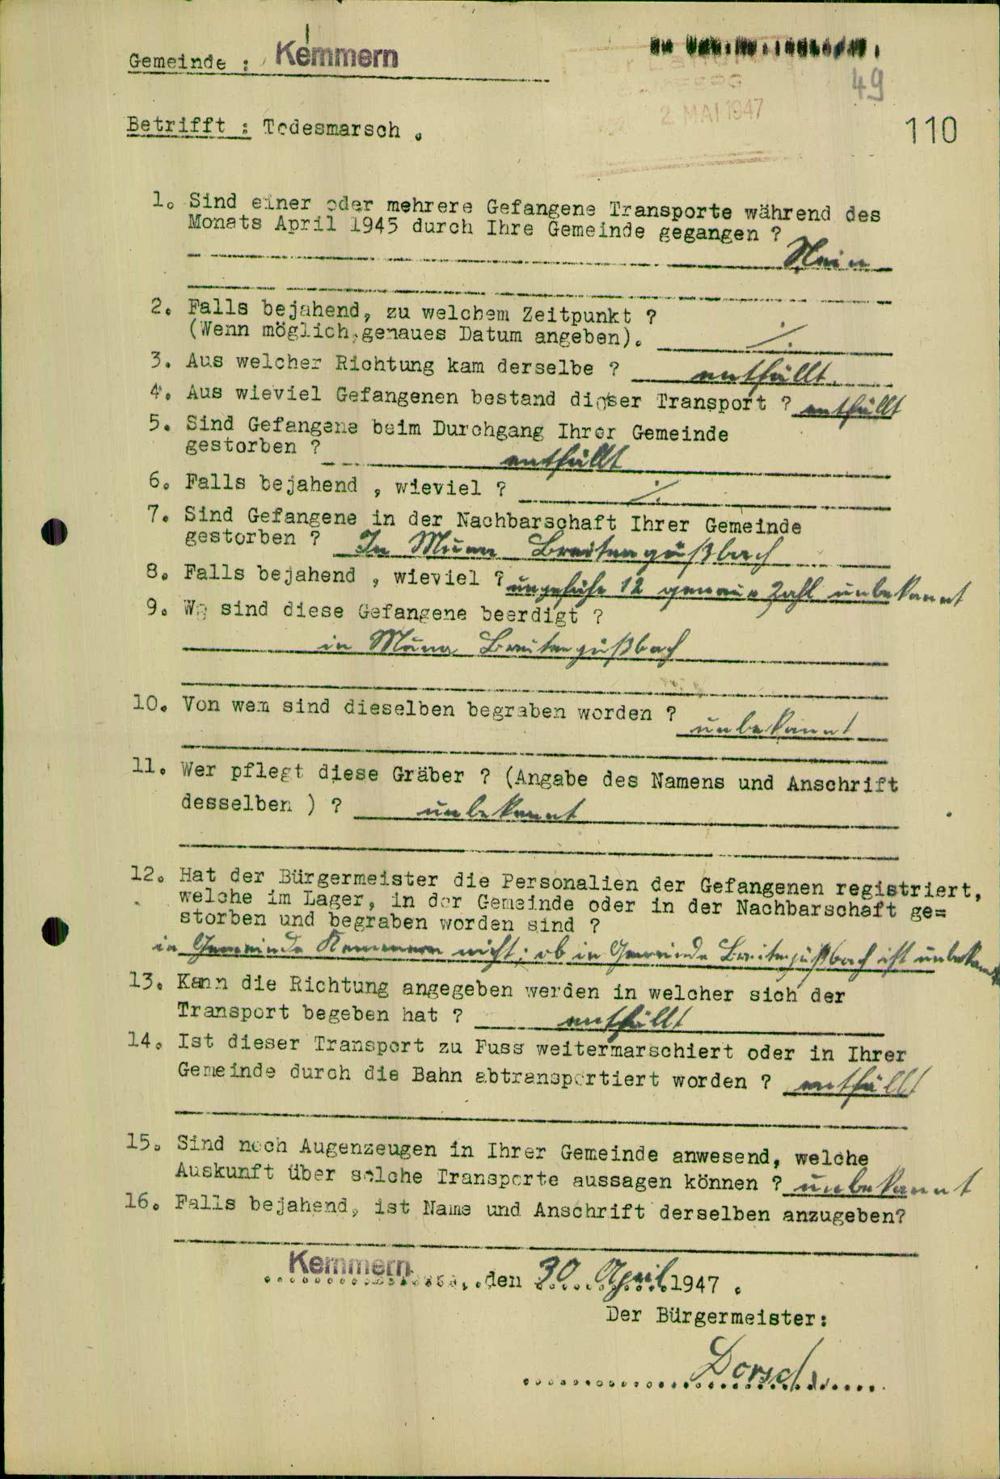 Gemeinde : Kemmern
49
2. MAI 1947
Betrifft : Todesmarsch .
110
1. Sind einer oder mehrere Gefangene Transporte während des
Monats April 1945 durch Ihre Gemeinde gegangen ?
Nein
2. Falls bejahend, zu welchem Zeitpunkt ?
(Wenn möglich, genaues Datum angeben). ./.
3. Aus welcher Richtung kam derselbe ? entfällt.
4. Aus wieviel Gefangenen bestand dieser Transport ? entfällt
5. Sind Gefangene beim Durchgang Ihrer Gemeinde
gestorben ? entfällt
6. Falls bejahend , wieviel ? ./.
7. Sind Gefangene in der Nachbarschaft Ihrer Gemeinde
gestorben ? In Muna Breitengüßbach
8. Falls bejahend , wieviel ? ungefähr 12 genaue Zahl unbekannt
9. Wo sind diese Gefangene beerdigt ?
in Muna Breitengüßbach
10. Von wem sind dieselben begraben worden ? unbekannt
11. Wer pflegt diese Gräber ? (Angabe des Namens und Anschrift
desselben ) ? unbekannt
12. Hat der Bürgermeister die Personalien der Gefangenen registriert,
welche im Lager, in der Gemeinde oder in der Nachbarschaft ge=
storben und begraben worden sind ?
in Gemeinde Kemmern nicht; ob in Gemeinde Breitengüßbach ist unbekannt
13. Kann die Richtung angegeben werden in welcher sich der
Transport begeben hat ? entfällt
14. Ist dieser Transport zu Fuss weitermarschiert oder in Ihrer
Gemeinde durch die Bahn abtransportiert worden ? entfällt
15. Sind noch Augenzeugen in Ihrer Gemeinde anwesend, welche
Auskunft über solche Transporte aussagen können ? unbekannt
16. Falls bejahend, ist Name und Anschrift derselben anzugeben?
Kemmern, den 30. April 1947 .
Der Bürgermeister:
Dorsch